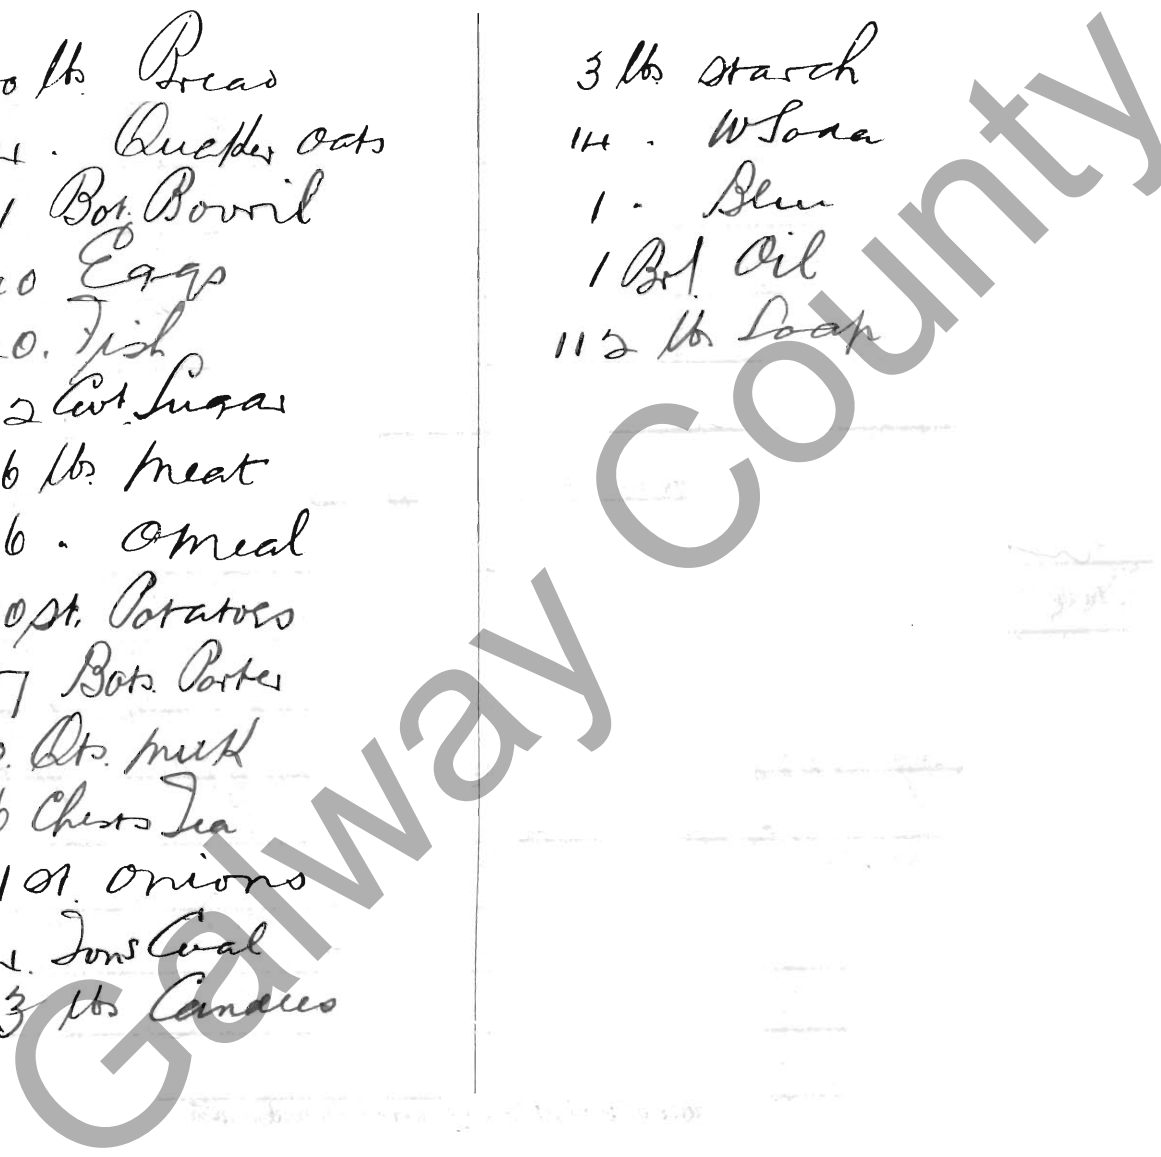 0 lbs. Bread
4 . Quaker oats
1 Bot. Bovril
0 Eggs
0. Fish
2 Cwt. Sugar
6 lbs. meat
6 . omeal
0 st. Potatoes
7 Bots. Porter
Qts. milk
6 Chests Tea
1 st. onions
Tons Coal
3 lbs Candles
3 lbs starch
14 . W Soda
1 . Blue
1 Brl. Oil
112 lbs Soap
Galway County